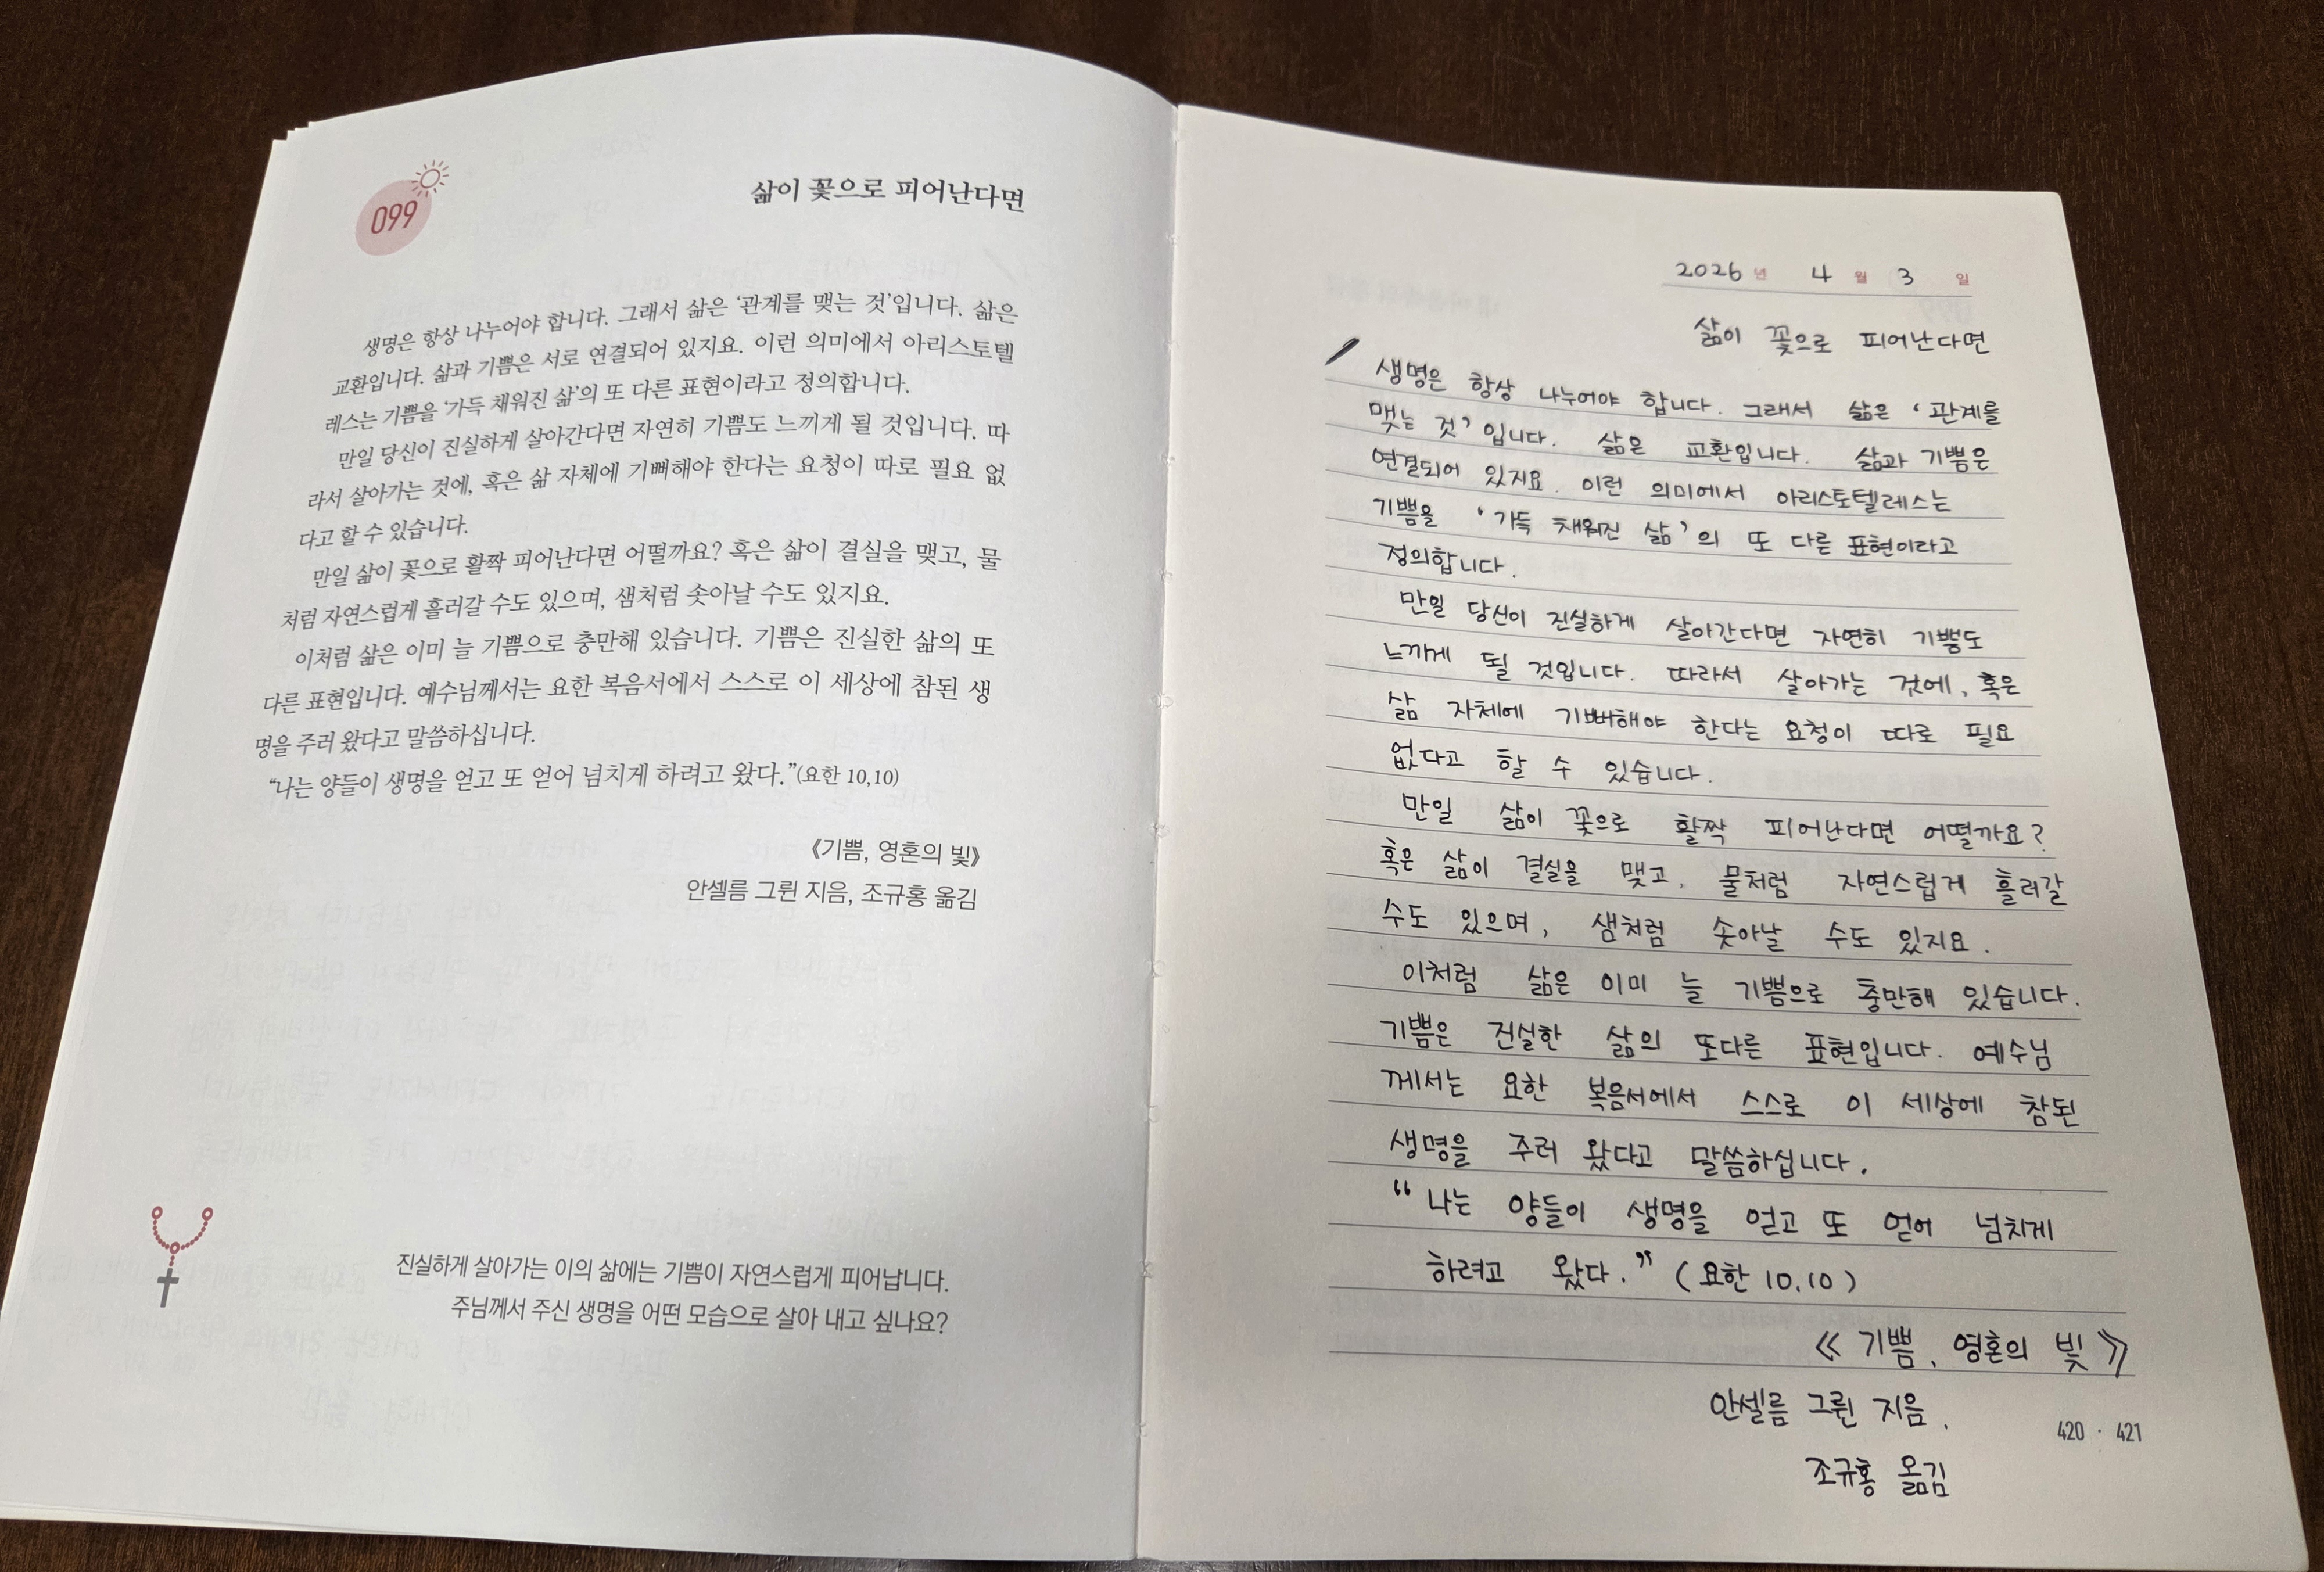 099
삶이 꽃으로 피어난다면
생명은 항상 나누어야 합니다. 그래서 삶은 ‘관계를 맺는 것’입니다. 삶은
교환입니다. 삶과 기쁨은 서로 연결되어 있지요. 이런 의미에서 아리스토텔
레스는 기쁨을 ‘가득 채워진 삶’의 또 다른 표현이라고 정의합니다.
만일 당신이 진실하게 살아간다면 자연히 기쁨도 느끼게 될 것입니다. 따
라서 살아가는 것에, 혹은 삶 자체에 기뻐해야 한다는 요청이 따로 필요 없
다고 할 수 있습니다.
만일 삶이 꽃으로 활짝 피어난다면 어떨까요? 혹은 삶이 결실을 맺고, 물
처럼 자연스럽게 흘러갈 수도 있으며, 샘처럼 솟아날 수도 있지요.
이처럼 삶은 이미 늘 기쁨으로 충만해 있습니다. 기쁨은 진실한 삶의 또
다른 표현입니다. 예수님께서는 요한 복음서에서 스스로 이 세상에 참된 생
명을 주러 왔다고 말씀하십니다.
“나는 양들이 생명을 얻고 또 얻어 넘치게 하려고 왔다.”(요한 10,10)
《기쁨, 영혼의 빛》
안셀름 그륀 지음, 조규홍 옮김
진실하게 살아가는 이의 삶에는 기쁨이 자연스럽게 피어납니다.
주님께서 주신 생명을 어떤 모습으로 살아 내고 싶나요?
2026 년 4 월 3 일
삶이 꽃으로 피어난다면
생명은 항상 나누어야 합니다. 그래서 삶은 ‘관계를
맺는 것’입니다. 삶은 교환입니다. 삶과 기쁨은
연결되어 있지요. 이런 의미에서 아리스토텔레스는
기쁨을 ‘가득 채워진 삶’의 또 다른 표현이라고
정의합니다.
만일 당신이 진실하게 살아간다면 자연히 기쁨도
느끼게 될 것입니다. 따라서 살아가는 것에, 혹은
삶 자체에 기뻐해야 한다는 요청이 따로 필요
없다고 할 수 있습니다.
만일 삶이 꽃으로 활짝 피어난다면 어떨까요?
혹은 삶이 결실을 맺고, 물처럼 자연스럽게 흘러갈
수도 있으며, 샘처럼 솟아날 수도 있지요.
이처럼 삶은 이미 늘 기쁨으로 충만해 있습니다.
기쁨은 진실한 삶의 또다른 표현입니다. 예수님
께서는 요한 복음서에서 스스로 이 세상에 참된
생명을 주러 왔다고 말씀하십니다.
“나는 양들이 생명을 얻고 또 얻어 넘치게
하려고 왔다.” (요한 10,10)
《기쁨, 영혼의 빛》
안셀름 그륀 지음,
420 · 421
조규홍 옮김